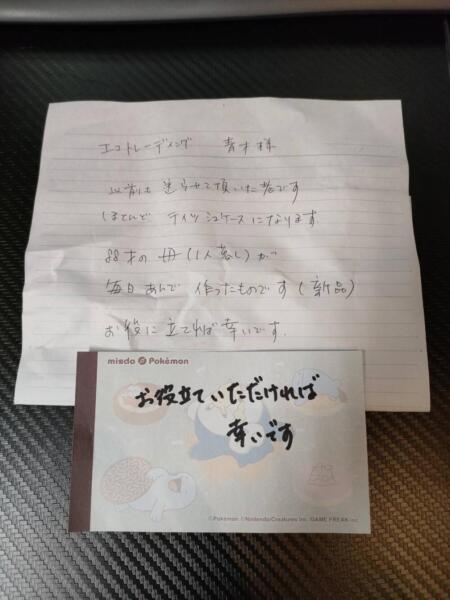 エコトレーディング 青木様
以前も送らせて頂いた者です
ほとんど ティッシュケースになります
88才の母(1人暮し)が
毎日あんで 作ったものです(新品)
お役に立てれば幸いです.
misdo Pokémon
お役立ていただければ
幸いです
©Pokémon ©Nintendo/Creatures Inc./GAME FREAK inc.